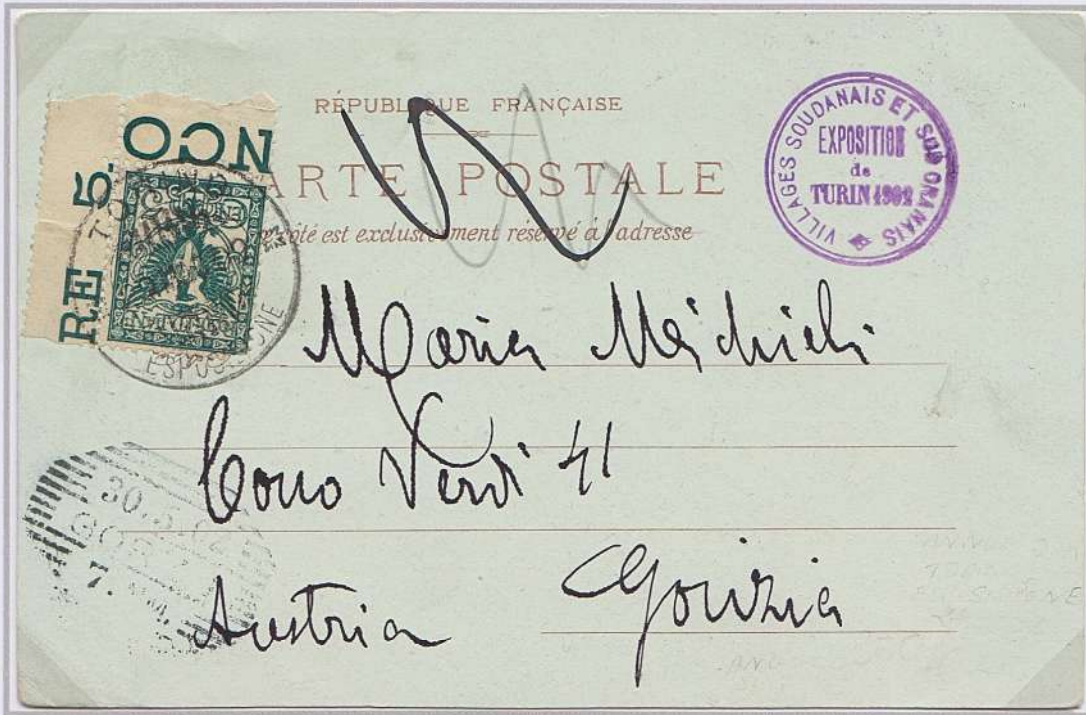 RÉPUBLIQUE FRANÇAISE
CARTE POSTALE
Ce côté est exclusivement réservé à l'adresse
VILLAGES SOUDANAIS ET SUD ORANAIS
EXPOSITION
de
TURIN 1902
NCO
RE 5
ESPOSIZIONE
Maria Michieli
Corso Verdi 41
Gorizia
Austria
30.5.02
GORZ
7.